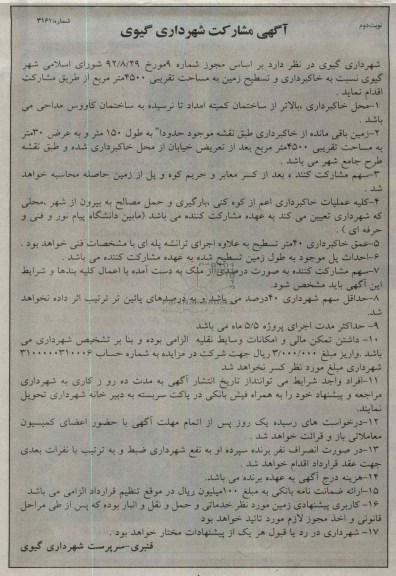 نوبت‌دوم
شماره:۳۱۶۲
آگهی مشارکت شهرداری گیوی
شهرداری گیوی در نظر دارد بر اساس مجوز شماره ۹مورخ ۹۲/۸/۲۹ شورای اسلامی شهر
گیوی نسبت به خاکبرداری و تسطیح زمین به مساحت تقریبی ۴۵۰۰متر مربع از طریق مشارکت
اقدام نماید .
۱-محل خاکبرداری ،بالاتر از ساختمان کمیته امداد تا نرسیده به ساختمان کاووس مداحی می
باشد .
۲-زمین باقی مانده از خاکبرداری طبق نقشه موجود حدودا" به طول ۱۵۰ متر و به عرض ۳۰متر
به مساحت تقریبی ۴۵۰۰متر مربع بعد از تعریض خیابان از محل خاکبرداری شده و طبق نقشه
طرح جامع شهر می باشد .
۳-سهم مشارکت کننده بعد از کسر معابر و حریم کوه و پل از زمین حاصله محاسبه خواهد
شد .
۴-کلیه عملیات خاکبرداری اعم از کوه کنی ،بارگیری و حمل مصالح به بیرون از شهر ،محلی
که شهرداری تعیین می کند به عهده مشارکت کننده می باشد (مابین دانشگاه پیام نور و فنی و
حرفه ای ) .
۵-عمق خاکبرداری ۴۰متر تسطیح به علاوه اجرای ترانشه پله ای با مشخصات فنی خواهد بود .
۶-احداث پل موجود به طول زمین تسطیح شده به عهده مشارکت کننده می باشد .
۷-سهم مشارکت کننده به صورت درصدی از ملک به دست آمده با اعمال کلیه بندها و شرایط
این آگهی باید مشخص شود.
۸-حداقل سهم شهرداری ۴۰درصد می باشد و به درصدهای پائین تر ترتیب اثر داده نخواهد
شد.
۹- حداکثر مدت اجرای پروژه ۵/۵ ماه می باشد
۱۰- داشتن تمکن مالی و امکانات وسایط نقلیه الزامی بوده و بنا بر تشخیص شهرداری می
باشد .واریز مبلغ ۳/۰۰۰/۰۰۰ ریال جهت شرکت در مزایده به شماره حساب ۳۱۰۰۰۰۰۳۱۰۰۰۶
شهرداری مبلغ مورد نظر کسر نخواهد شد
۱۱-افراد واجد شرایط می توانندااز تاریخ انتشار آگهی به مدت ده رو ز کاری به شهرداری
مراجعه و پیشنهاد خود را به همراه فیش بانکی در پاکت سربسته به دبیر خانه شهرداری تحویل
نمایند.
۱۲-درخواست های رسیده یک روز پس از اتمام مهلت آگهی با حضور اعضای کمیسیون
معاملاتی باز و قرائت خواهد شد .
۱۳-در صورت انصراف نفر برنده سپرده او به نفع شهرداری ضبط و به ترتیب با نفرات بعدی
جهت عقد قرارداد اقدام خواهد شد .
۱۴-هزینه درج آگهی به عهده برنده می باشد.
۱۵-ارائه ضمانت نامه بانکی به مبلغ ۱۰۰میلیون ریال در موقع تنظیم قرارداد الزامی می باشد
۱۶- کاربری پیشنهادی زمین مورد نظر خدماتی و حمل و نقل و انبار بوده که پس از طی مراحل
قانونی و اخذ مجوز لازم مورد تائید خواهد بود
۱۷- شهرداری در رد یا قبول هر یک از پیشنهادات مختار خواهد بود .
قنبری-سرپرست شهرداری گیوی